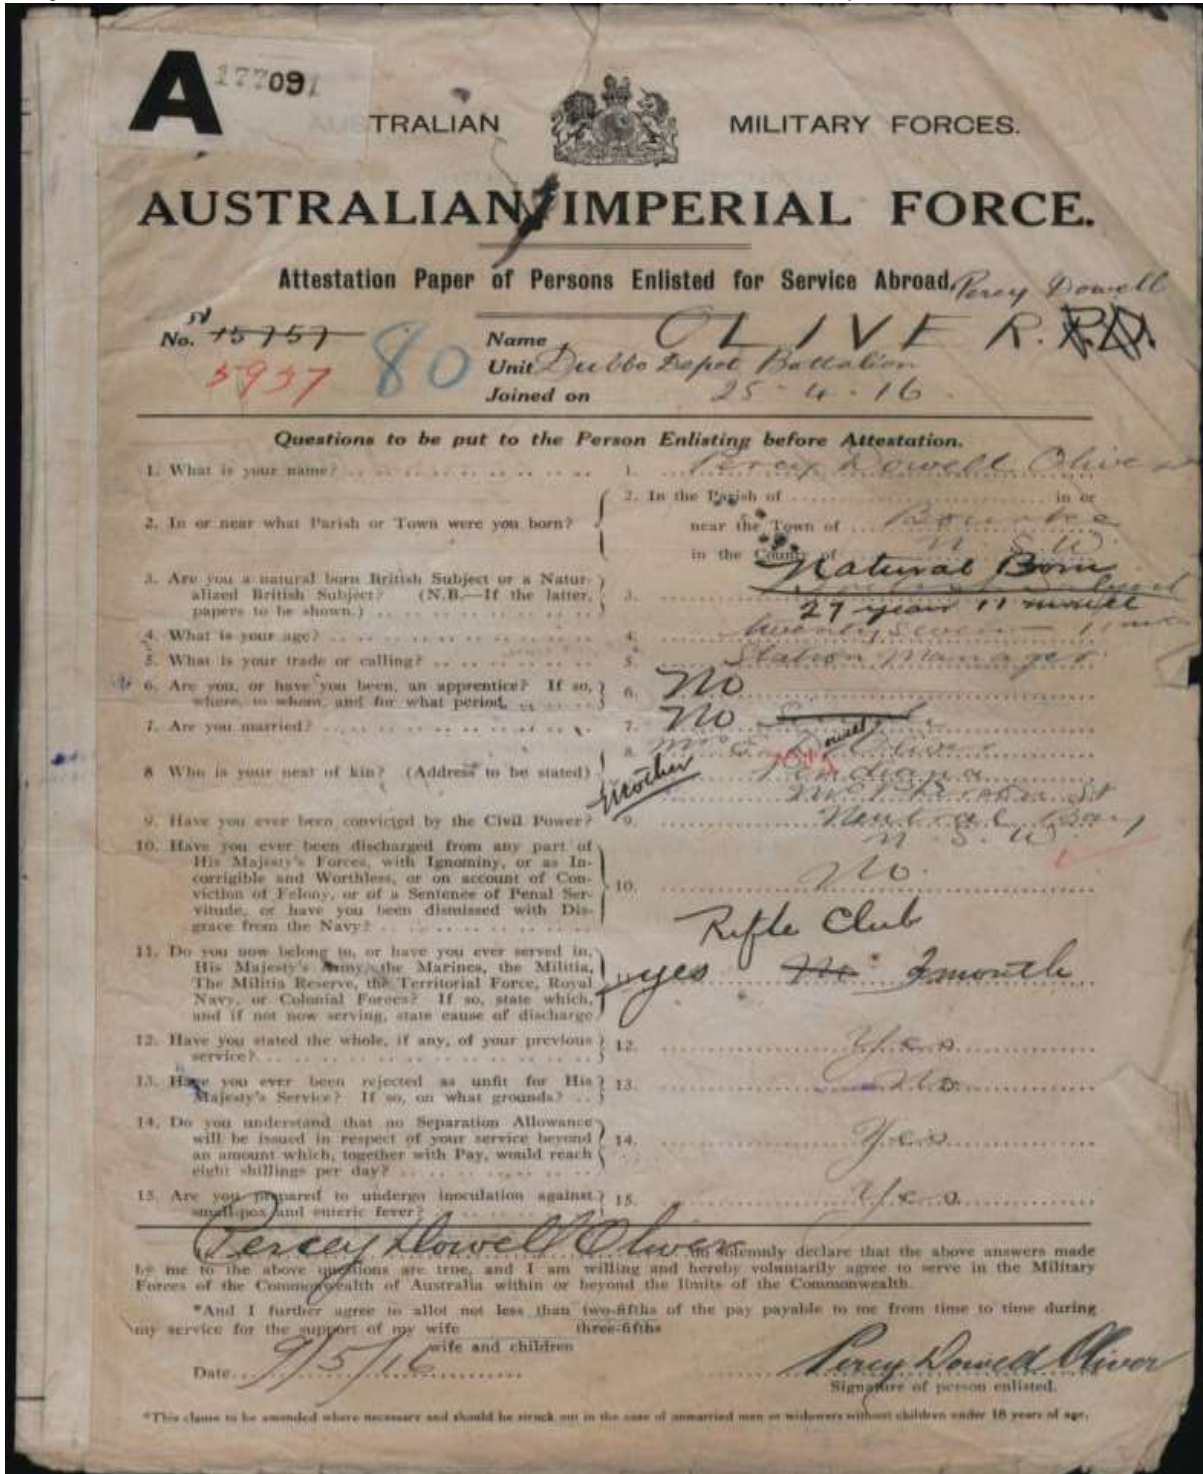 A 177091
AUSTRALIAN MILITARY FORCES.
AUSTRALIAN IMPERIAL FORCE.
Attestation Paper of Persons Enlisted for Service Abroad. Percy Dowell
No. N 15757 Name OLIVER. P.D.
5937 80 Unit Dubbo Depot Battalion
Joined on 25-4-16
Questions to be put to the Person Enlisting before Attestation.
1. What is your name? 1. Percy Dowell Oliver
2. In or near what Parish or Town were you born? 2. In the Parish of in or
near the Town of Bourke
in the County of N.S.W.
3. Are you a natural born British Subject or a Natur-
alized British Subject? (N.B.—If the latter,
papers to be shown.) 3. Natural Born
27 year 11 month
4. What is your age? 4. twenty seven 11
5. What is your trade or calling? 5. Station Manager
6. Are you, or have you been, an apprentice? If so,
where, to whom, and for what period. 6. No
7. Are you married? 7. No
8 Who is your next of kin? (Address to be stated) 8. Mrs Oliver
Mother
McPherson St
Neutral Bay
N.S.W.
9. Have you ever been convicted by the Civil Power? 9.
10. Have you ever been discharged from any part of
His Majesty's Forces, with Ignominy, or as In-
corrigible and Worthless, or on account of Con-
viction of Felony, or of a Sentence of Penal Ser-
vitude, or have you been dismissed with Dis-
grace from the Navy? 10. No.
Rifle Club
11. Do you now belong to, or have you ever served in,
His Majesty's Army, the Marines, the Militia,
The Militia Reserve, the Territorial Force, Royal
Navy, or Colonial Forces? If so, state which,
and if not now serving, state cause of discharge 11. yes No 3 month
12. Have you stated the whole, if any, of your previous
service? 12. Yes
13. Have you ever been rejected as unfit for His
Majesty's Service? If so, on what grounds? 13. No
14. Do you understand that no Separation Allowance
will be issued in respect of your service beyond
an amount which, together with Pay, would reach
eight shillings per day? 14. Yes
15. Are you prepared to undergo inoculation against
small-pox and enteric fever? 15. Yes
I, Percey Dowell Oliver do solemnly declare that the above answers made
by me to the above questions are true, and I am willing and hereby voluntarily agree to serve in the Military
Forces of the Commonwealth of Australia within or beyond the limits of the Commonwealth.
*And I further agree to allot not less than two-fifths of the pay payable to me from time to time during
three-fifths
my service for the support of my wife
wife and children
Date 9/5/16 Percy Dowell Oliver
Signature of person enlisted.
*This clause to be amended where necessary and should be struck out in the case of unmarried men or widowers without children under 18 years of age.